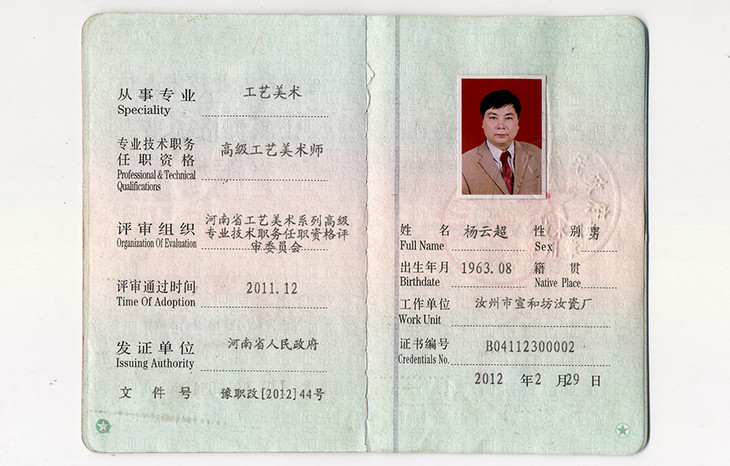 从事专业 工艺美术
Speciality
专业技术职务
任职资格 高级工艺美术师
Professional & Technical
Qualifications
评审组织 河南省工艺美术系列高级
专业技术职务任职资格评
审委员会
Organization Of Evaluation
评审通过时间 2011.12
Time Of Adoption
发证单位 河南省人民政府
Issuing Authority
文件号 豫职改[2012]44号
姓名 杨云超 性别 男
Full Name Sex
出生年月 1963.08 籍贯
Birthdate Native Place
工作单位 汝州市宣和坊汝瓷厂
Work Unit
证书编号 B04112300002
Credentials No.
2012 年2 月29 日